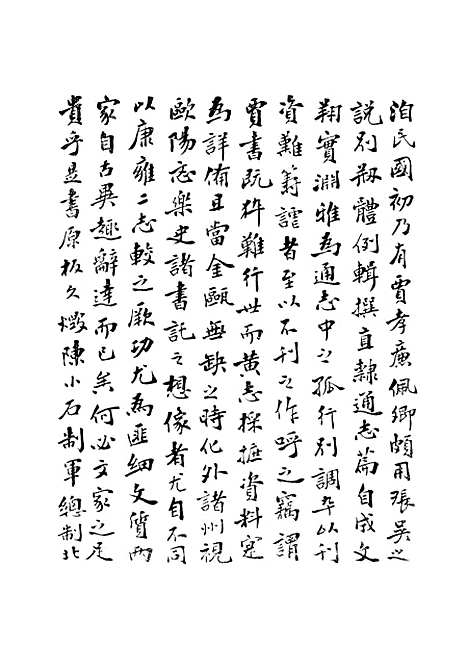 洎民國初乃有賈孝廉佩卿頗用張吳之
說别剏體例輯撰直隸通志篇自成文
翔實淵雅為通志中之孤行别調卒以刊
資難籌讆者至以不刊之作呼之竊謂
賈書既猝難行世而黃志採摭資料寔
為詳備且當金甌無缺之時化外諸州視
歐陽忞樂史諸書託之想像者尤自不同
以康雍二志較之厥功尤為匪細文質兩
家自古異趣辭達而已矣何必文家之足
貴乎是書原板久燬陳小石制軍總制北